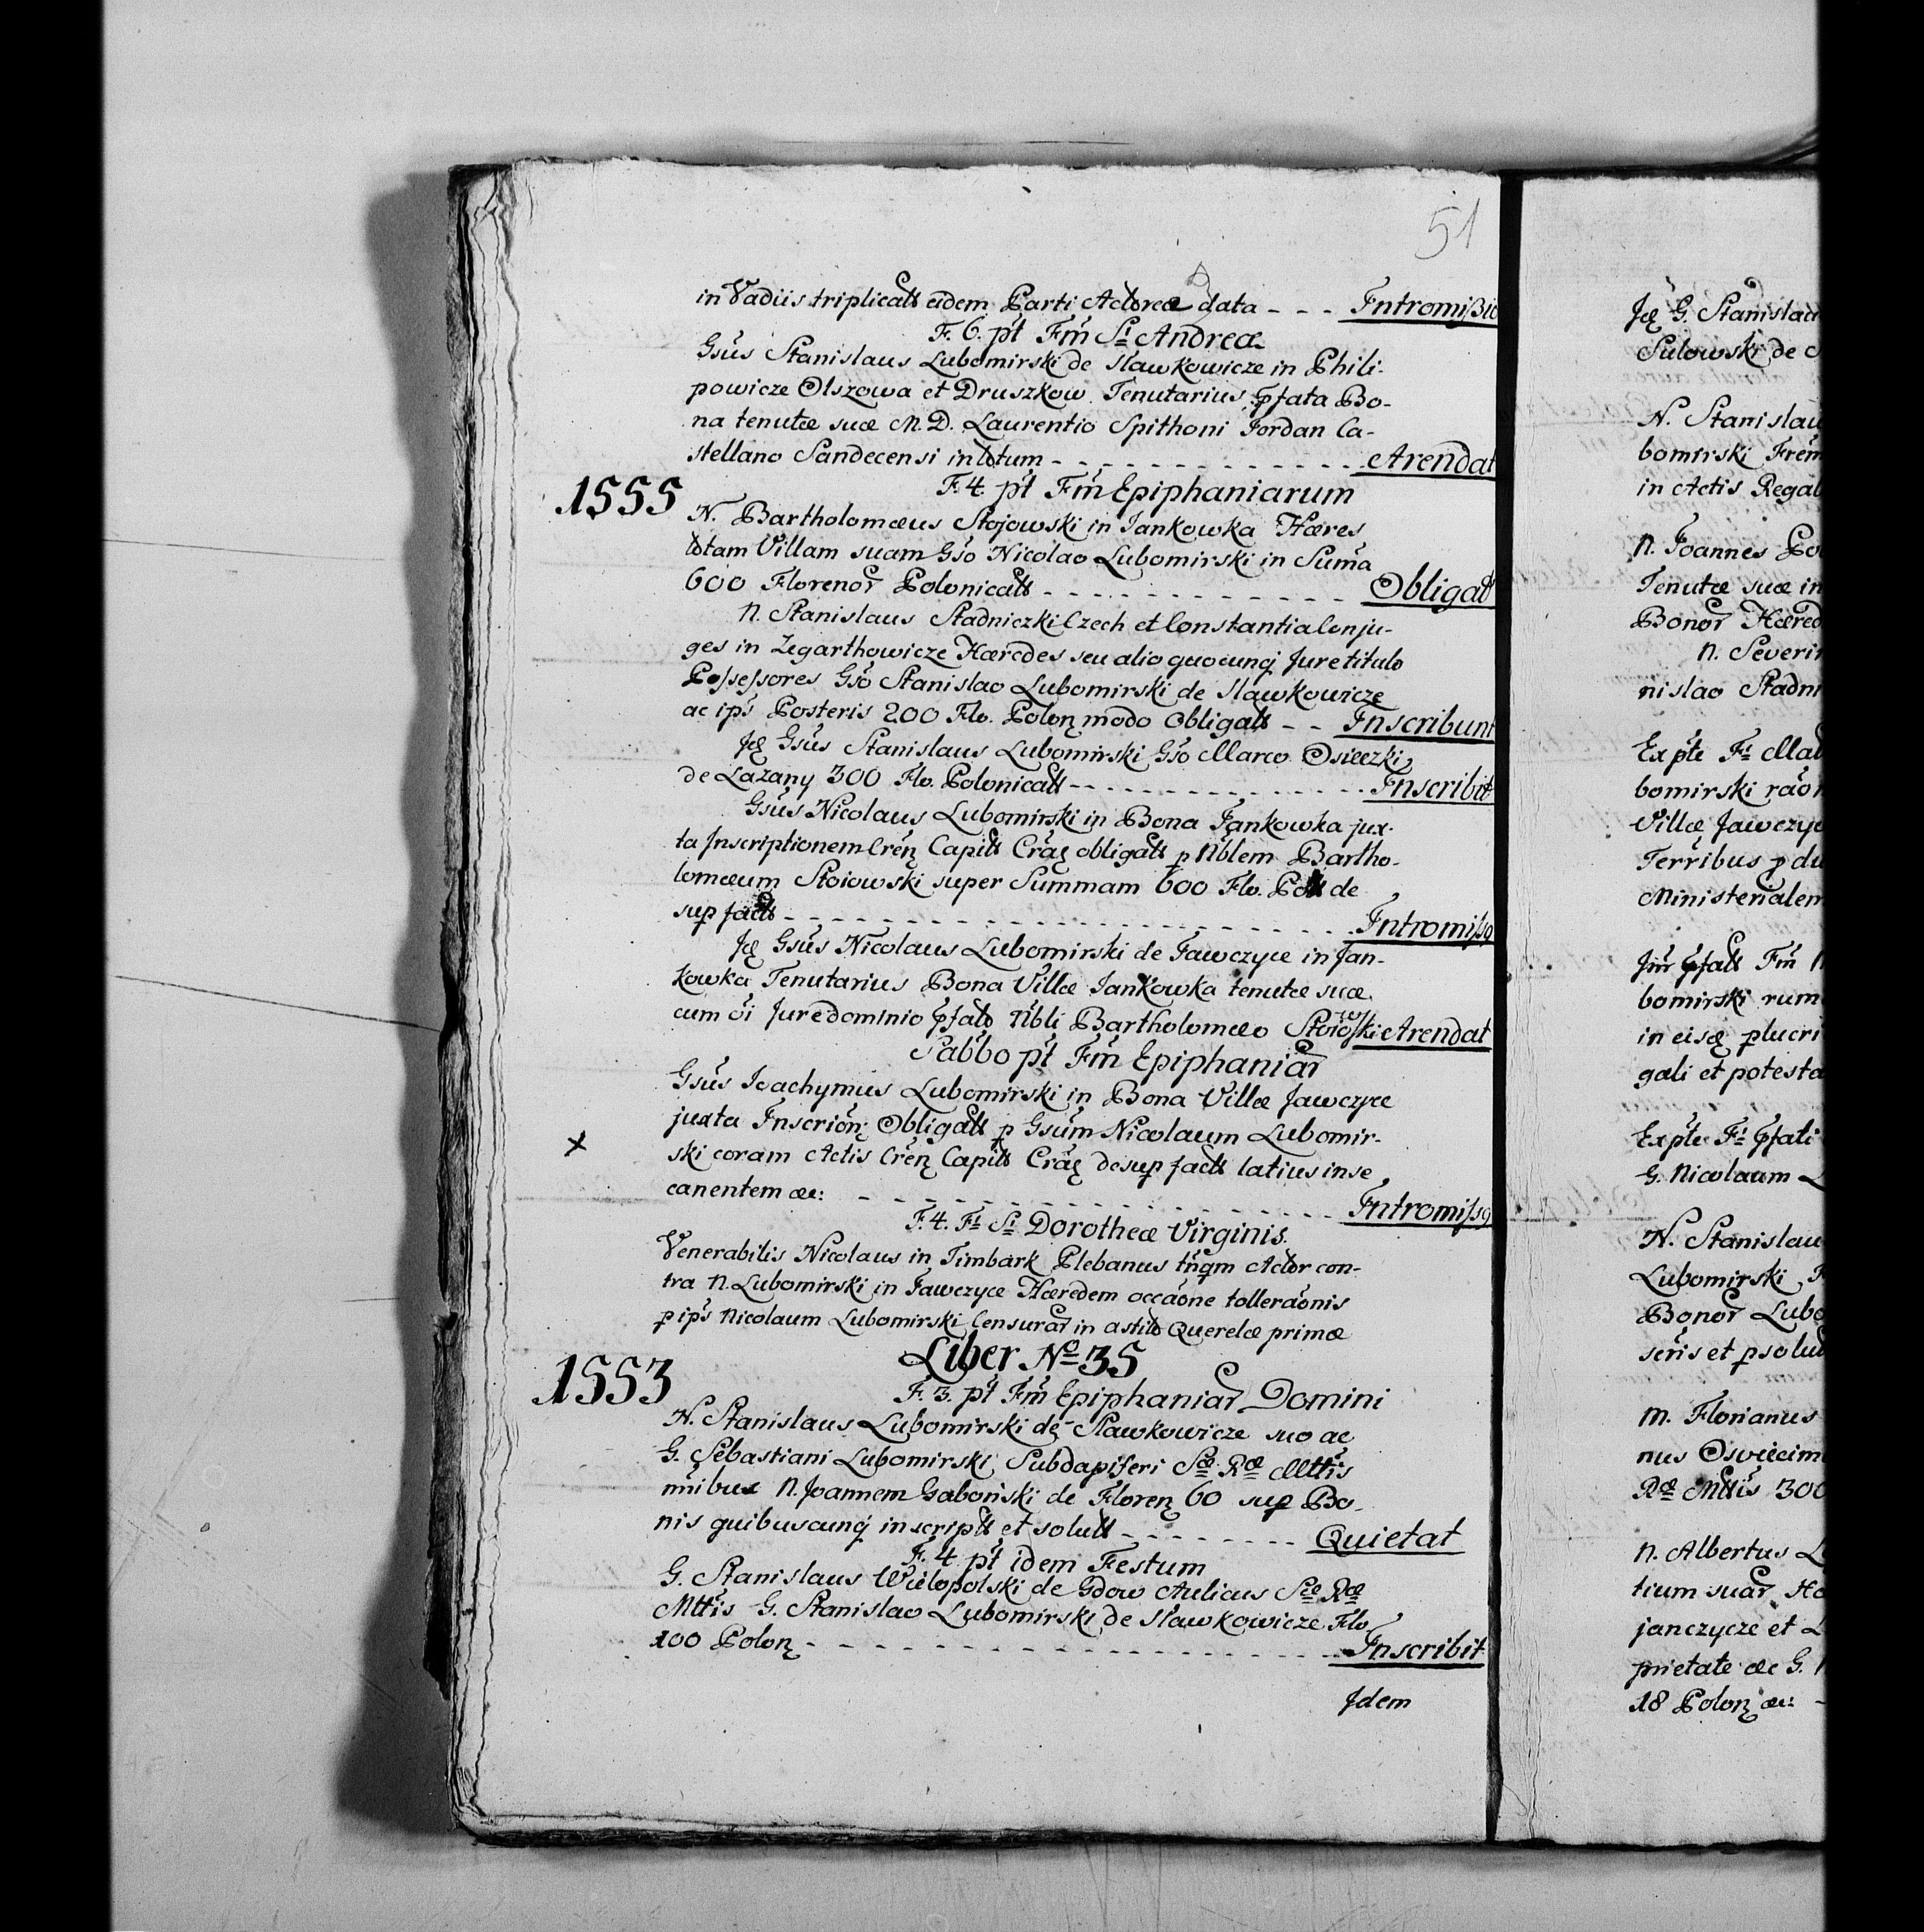 51
in Vadiis triplicats eidem Parti Actoreæ data - - - Intromißio
F. 6. pt Fm Si Andreæ
Gsus Stanislaus Lubomirski de Slawkowicze in Phili-
powicze Olszowa et Druszkow Tenutarius pfata Bo-
na tenutæ suæ M. D. Laurentio Spithoni Jordan Ca-
stellano Sandecensi in totum - - - Arendat
1555
F. 4. pt Fm Epiphaniarum
N. Bartholomæus Stojowski in Jankowka Hæres
totam Villam suam Gso Nicolao Lubomirski in Suma
600 Florenor Polonicals - - - Obligat
N. Stanislaus Stadniczki Czech et Constantia Conju-
ges in Zegarthowicze Hæredes seu alio quocunq Jure titulo
Possessores Gso Stanislao Lubomirski de Slawkowicze
ac ips Posteris 200 Flo. Polon modo obligats - - Inscribunt
Jd Gsus Stanislaus Lubomirski Gso Marco Osieczki
de Lazany 300 Flo. Polonicals - - - Inscribit
Gsus Nicolaus Lubomirski in Bona Jankowka jux-
ta Inscriptionem Cren Capits Crac obligats p Nblem Bartho-
lomæum Stoiowski super Summam 600 Flo. Pols de
sup facts - - - Intromissq
Jd Gsus Nicolaus Lubomirski de Jawczyce in Jan-
kowka Tenutarius Bona Villæ Jankowka tenutæ suæ
cum oi Jure dominio pfato Nbli Bartholomæo Stoiowski Arendat
Sabbo pt Fm Epiphaniar
Gsus Joachymus Lubomirski in Bona Villæ Jawczyce
juxta Inscrion Obligats p Gsum Nicolaum Lubomir-
x
ski coram Actis Cren Capits Crac desup facts latius in se
canentem &c: - - - Intromissq
F. 4. Fi Si Dorotheæ Virginis.
Venerabilis Nicolaus in Timbark Plebanus tnqm Actor con-
tra N. Lubomirski in Jawczyce Hæredem occaone tolleraonis
p ips Nicolaum Lubomirski Censurar in astito Querelæ primæ
Liber No 35
1553
F. 3. pt Fm Epiphaniar Domini
N. Stanislaus Lubomirski de Slawkowicze suo ac
G. Sebastiani Lubomirski Subdapiferi Sæ Ræ Mttis
nnibus N. Joannem Gaboński de Floren 60 sup Bo-
nis quibuscunq inscripts et soluts - - - Quietat
F. 4. pt idem Festum
G. Stanislaus Wielopolski de Gdow Aulicus Sæ Ræ
Mttis G. Stanislao Lubomirski de Slawkowicze Flo
100 Polon - - - Inscribit
Jdem
Jd G. Stanislau
Sulowski de
N. Stanislau
bomirski Frem
in Actis Regal
N. Joannes
Tenutæ suæ in
Bonor Hæred
N. Severin
nislao Stadni
Ex pte Fi
bomirski raon
Villæ Jawczyc
Terribus p du
Ministerialem
Jm pfats Fm
bomirski rum
in eisd plucri
gali et potesta
Ex pte Fi pfati
G. Nicolaum
N. Stanislau
Lubomirski
Bonor Lubo
seris et psolu
M. Florianus
nus Oswiecim
Ræ Mttis 300
N. Albertus
tium suar
janczycze et
prietate &c G.
18 Polon &c: